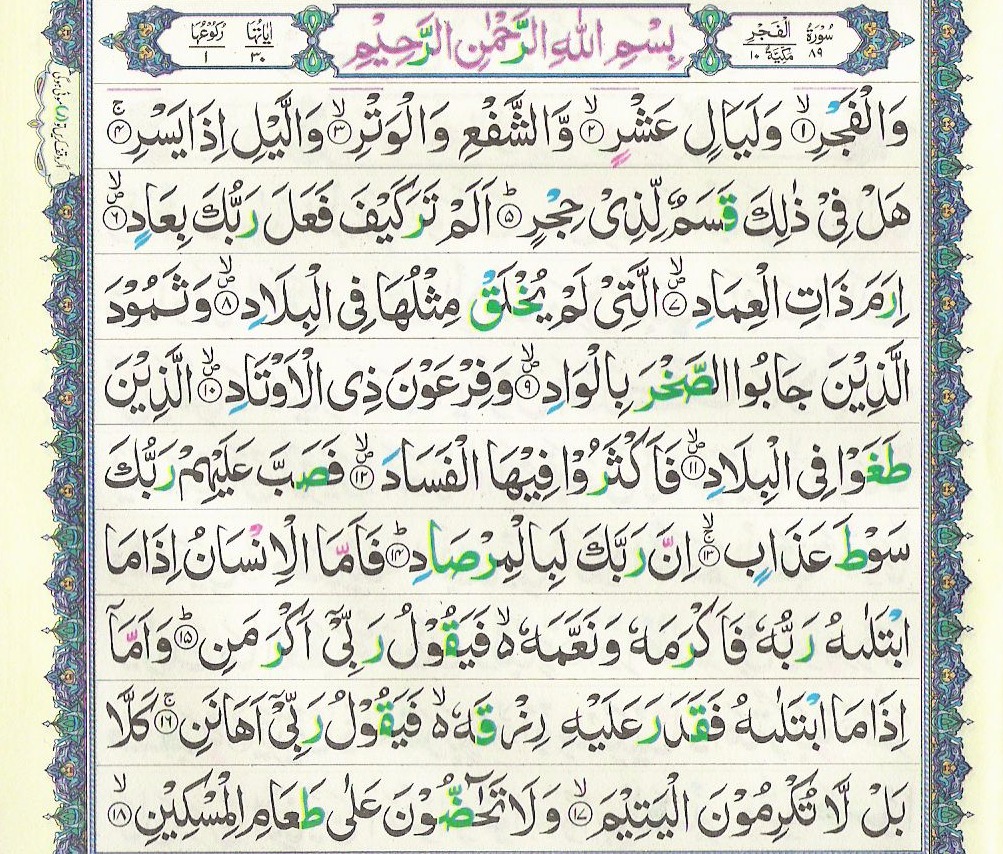 سُورَةُ الْفَجْرِ بِسْمِ اللهِ الرَّحْمٰنِ الرَّحِيْمِ اٰيَاتُهَا رُكُوْعُهَا
٨٩ مَكِّيَّةٌ ١٠ ٣٠ ١
وَالْفَجْرِ ۙ﴿١﴾ وَلَيَالٍ عَشْرٍ ۙ﴿٢﴾ وَّالشَّفْعِ وَالْوَتْرِ ۙ﴿٣﴾ وَالَّيْلِ اِذَا يَسْرِ ۚ﴿٤﴾
هَلْ فِىْ ذٰلِكَ قَسَمٌ لِّذِىْ حِجْرٍ ؕ﴿٥﴾ اَلَمْ تَرَ كَيْفَ فَعَلَ رَبُّكَ بِعَادٍ ۙ﴿٦﴾
اِرَمَ ذَاتِ الْعِمَادِ ۙ﴿٧﴾ الَّتِىْ لَمْ يُخْلَقْ مِثْلُهَا فِى الْبِلَادِ ۙ﴿٨﴾ وَثَمُوْدَ
الَّذِيْنَ جَابُوا الصَّخْرَ بِالْوَادِ ۙ﴿٩﴾ وَفِرْعَوْنَ ذِى الْاَوْتَادِ ۙ﴿١٠﴾ الَّذِيْنَ
طَغَوْا فِى الْبِلَادِ ۙ﴿١١﴾ فَاَكْثَرُوْا فِيْهَا الْفَسَادَ ۙ﴿١٢﴾ فَصَبَّ عَلَيْهِمْ رَبُّكَ
سَوْطَ عَذَابٍ ۚۙ﴿١٣﴾ اِنَّ رَبَّكَ لَبِالْمِرْصَادِ ؕ﴿١٤﴾ فَاَمَّا الْاِنْسَانُ اِذَا مَا
ابْتَلٰىهُ رَبُّهٗ فَاَكْرَمَهٗ وَنَعَّمَهٗ ۙ۬ فَيَقُوْلُ رَبِّىْۤ اَكْرَمَنِ ؕ﴿١٥﴾ وَاَمَّاۤ
اِذَا مَا ابْتَلٰىهُ فَقَدَرَ عَلَيْهِ رِزْقَهٗ ۙ۬ فَيَقُوْلُ رَبِّىْۤ اَهَانَنِ ۚ﴿١٦﴾ كَلَّا
بَلْ لَّا تُكْرِمُوْنَ الْيَتِيْمَ ۙ﴿١٧﴾ وَلَا تَحٰٓضُّوْنَ عَلٰى طَعَامِ الْمِسْكِيْنِ ۙ﴿١٨﴾